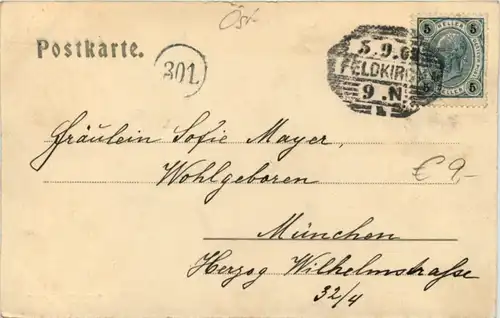 Öst.
Postkarte.
301
5.9.0
FELDKIRC
9.N
5 HELLER 5
5 HELLER 5
Fräulein Sofie Mayer,
Wohlgeboren
€ 9,-
München
Herzog Wilhelmstraße
32/4